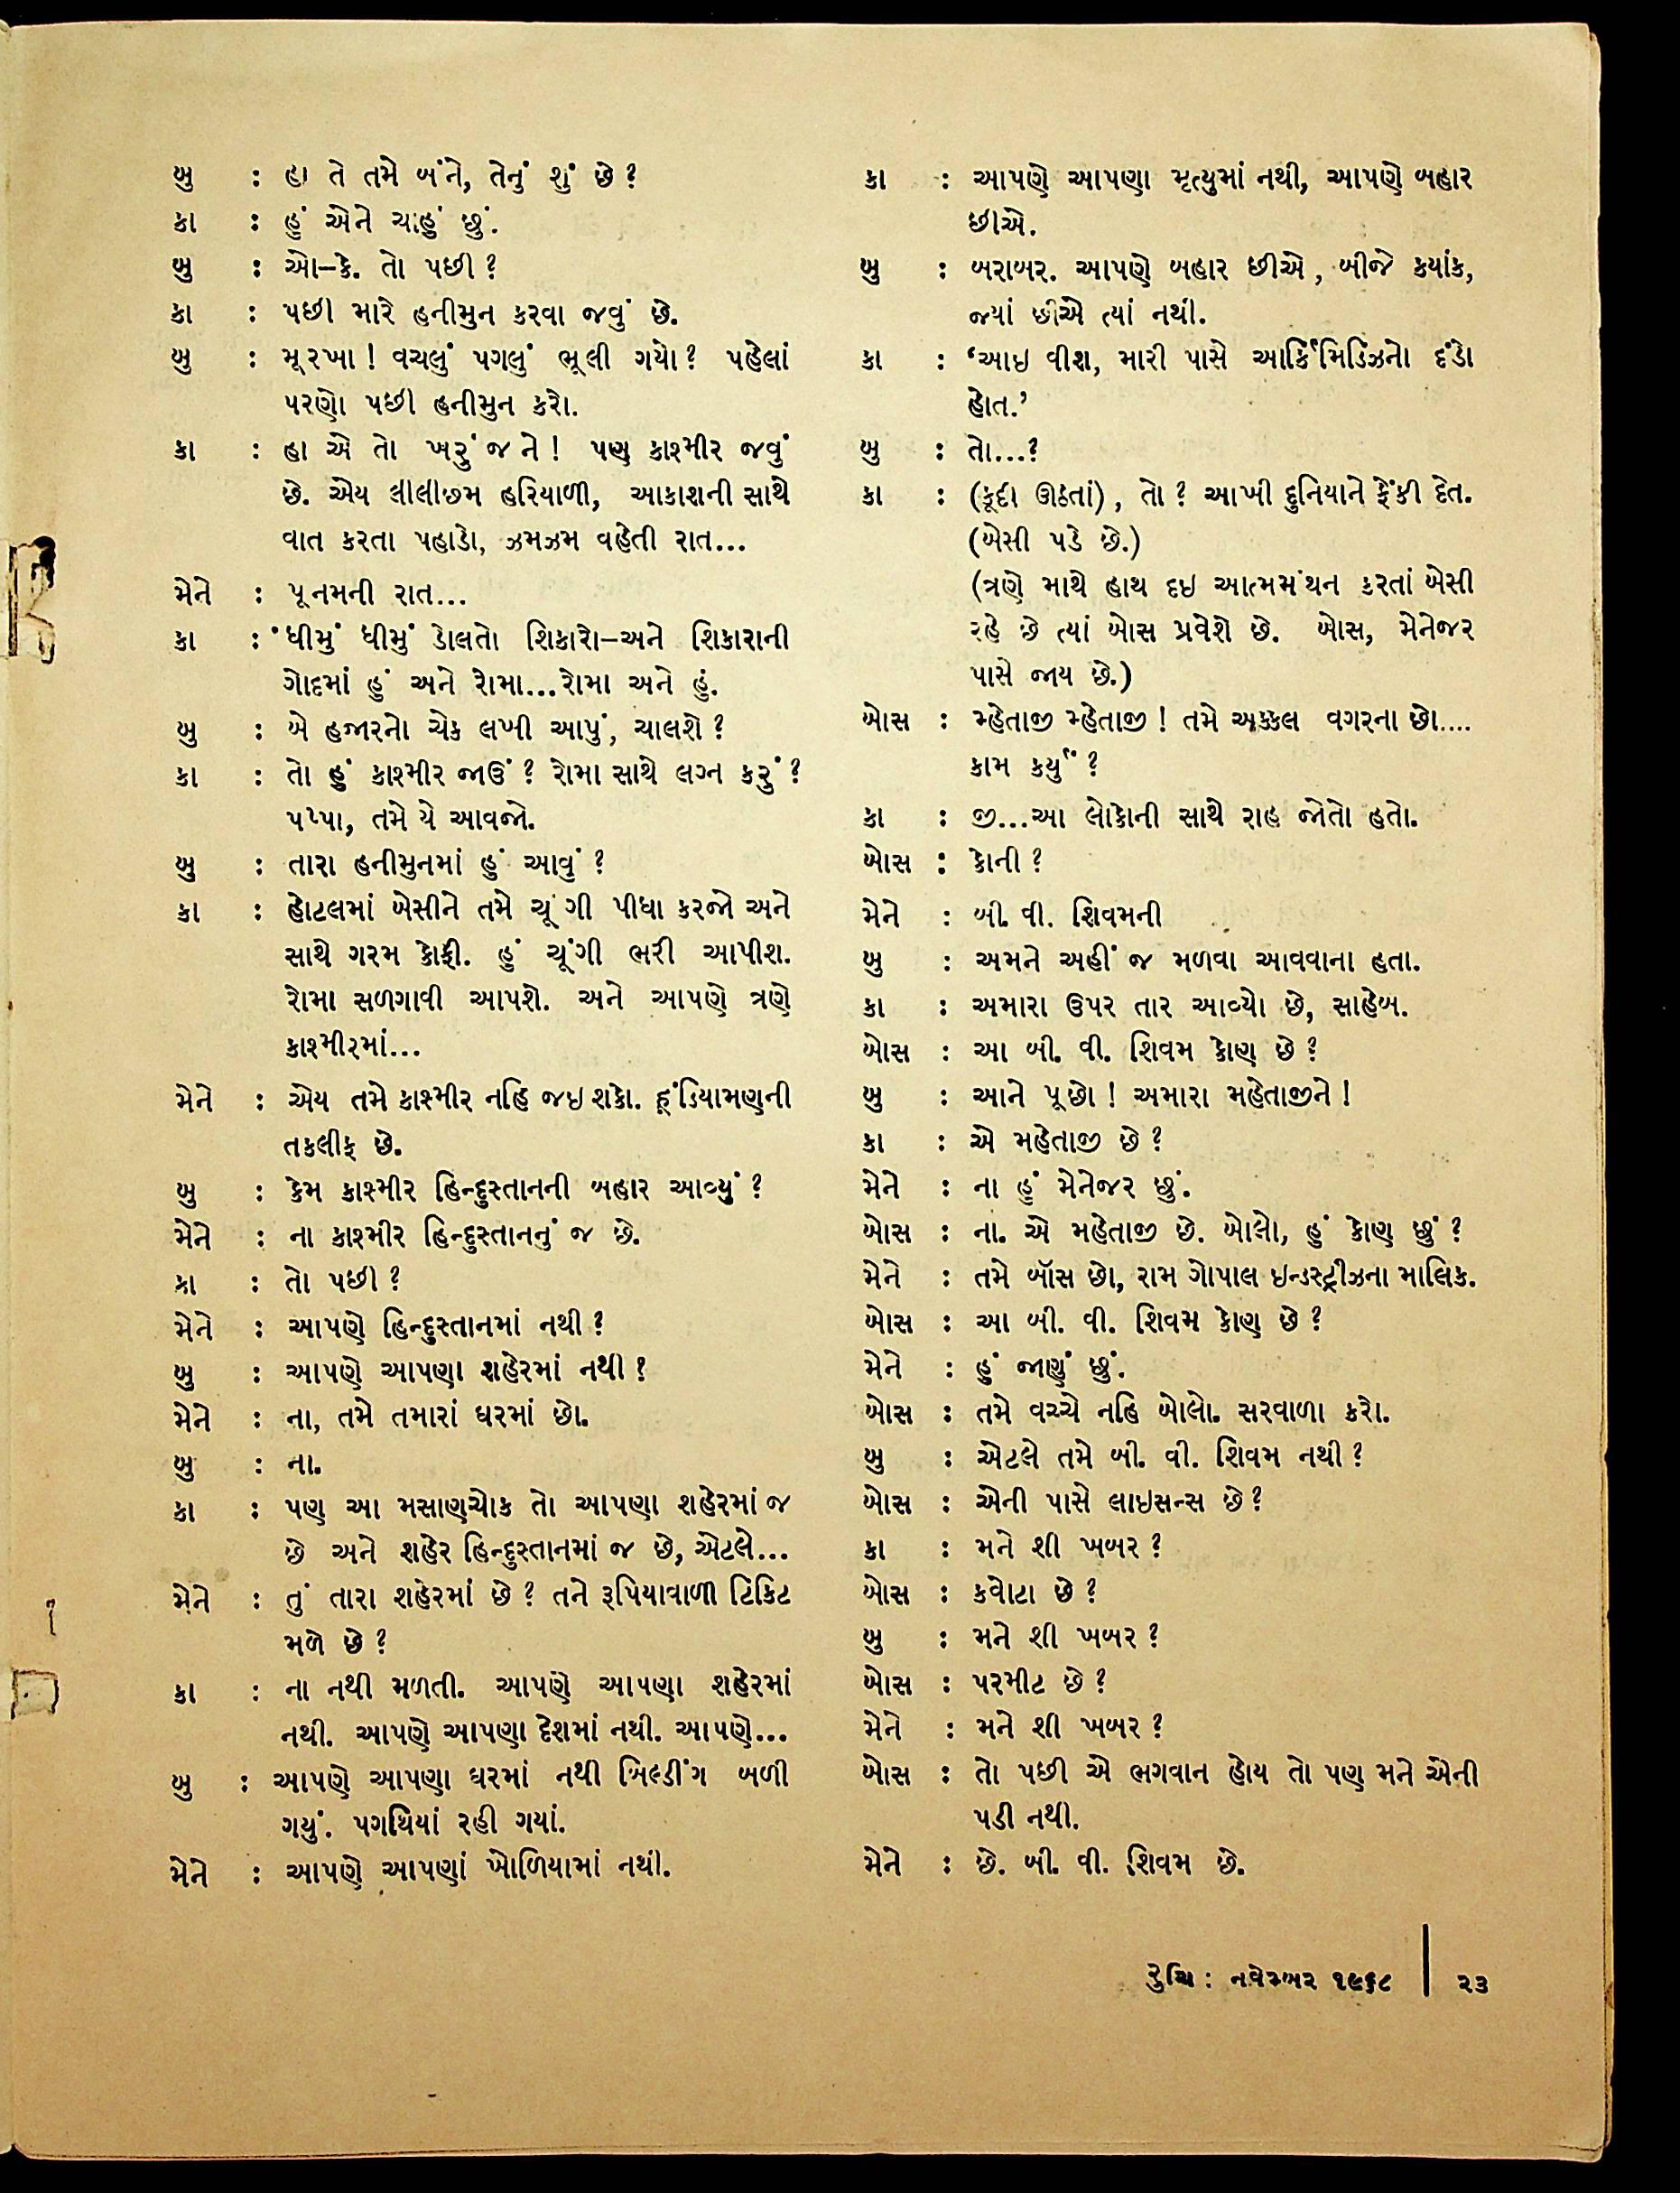 બુ : હા તે તમે બંને, તેનું શું છે?
કા : હું એને ચાહું છું.
બુ : ઓ-કે. તો પછી?
કા : પછી મારે હનીમુન કરવા જવું છે.
બુ : મૂરખા! વચલું પગલું ભૂલી ગયો? પહેલાં
પરણો પછી હનીમુન કરો.
કા : હા એ તો ખરું જ ને! પણ કાશ્મીર જવું
છે. એય લીલીછમ હરિયાળી, આકાશની સાથે
વાત કરતા પહાડો, ઝમઝમ વહેતી રાત...
મેને : પૂનમની રાત...
કા : ધીમું ધીમું ડોલતો શિકારો–અને શિકારાની
ગોદમાં હું અને રોમા...રોમા અને હું.
બુ : બે હજારનો ચેક લખી આપું, ચાલશે?
કા : તો હું કાશ્મીર જાઉં? રોમા સાથે લગ્ન કરું?
પપ્પા, તમે યે આવજો.
બુ : તારા હનીમુનમાં હું આવું?
કા : હોટલમાં બેસીને તમે ચૂંગી પીધા કરજો અને
સાથે ગરમ કોફી. હું ચૂંગી ભરી આપીશ.
રોમા સળગાવી આપશે. અને આપણે ત્રણે
કાશ્મીરમાં...
મેને : એય તમે કાશ્મીર નહિ જઇ શકો. હૂંડિયામણની
તકલીફ છે.
બુ : કેમ કાશ્મીર હિન્દુસ્તાનની બહાર આવ્યું?
મેને : ના કાશ્મીર હિન્દુસ્તાનનું જ છે.
કા : તો પછી?
મેને : આપણે હિન્દુસ્તાનમાં નથી?
બુ : આપણે આપણા શહેરમાં નથી?
મેને : ના, તમે તમારાં ઘરમાં છો.
બુ : ના.
કા : પણ આ મસાણચોક તો આપણા શહેરમાં જ
છે અને શહેર હિન્દુસ્તાનમાં જ છે, એટલે...
મેને : તું તારા શહેરમાં છે? તને રૂપિયાવાળી ટિકિટ
મળે છે?
કા : ના નથી મળતી. આપણે આપણા શહેરમાં
નથી. આપણે આપણા દેશમાં નથી. આપણે...
બુ : આપણે આપણા ઘરમાં નથી બિલ્ડીંગ બળી
ગયું. પગથિયાં રહી ગયાં.
મેને : આપણે આપણાં ખોળિયામાં નથી.
કા : આપણે આપણા મૃત્યુમાં નથી, આપણે બહાર
છીએ.
બુ : બરાબર. આપણે બહાર છીએ, બીજે કયાંક,
જ્યાં છીએ ત્યાં નથી.
કા : ‘આઇ વીશ, મારી પાસે આર્કિમિડિઝનો દંડો
હોત.’
બુ : તો...?
કા : (કૂદી ઊઠતાં), તો? આખી દુનિયાને ફેંકી દેત.
(બેસી પડે છે.)
(ત્રણે માથે હાથ દઇ આત્મમંથન કરતાં બેસી
રહે છે ત્યાં બોસ પ્રવેશે છે. બોસ, મેનેજર
પાસે જાય છે.)
બોસ : મ્હેતાજી મ્હેતાજી! તમે અક્કલ વગરના છો....
કામ કર્યું?
કા : જી...આ લોકોની સાથે રાહ જોતો હતો.
બોસ : કોની?
મેને : બી. વી. શિવમની
બુ : અમને અહીં જ મળવા આવવાના હતા.
કા : અમારા ઉપર તાર આવ્યો છે, સાહેબ.
બોસ : આ બી. વી. શિવમ કોણ છે?
બુ : આને પૂછો! અમારા મહેતાજીને!
કા : એ મહેતાજી છે?
મેને : ના હું મેનેજર છું.
બોસ : ના. એ મહેતાજી છે. બોલો, હું કોણ છું?
મેને : તમે બૉસ છો, રામ ગોપાલ ઇન્ડસ્ટ્રીઝના માલિક.
બોસ : આ બી. વી. શિવમ કોણ છે?
મેને : હું જાણું છું.
બોસ : તમે વચ્ચે નહિ બોલો. સરવાળા કરો.
બુ : એટલે તમે બી. વી. શિવમ નથી?
બોસ : એની પાસે લાઇસન્સ છે?
કા : મને શી ખબર?
બોસ : કવોટા છે?
બુ : મને શી ખબર?
બોસ : પરમીટ છે?
મેને : મને શી ખબર?
બોસ : તો પછી એ ભગવાન હોય તો પણ મને એની
પડી નથી.
મેને : છે. બી. વી. શિવમ છે.
રુચિ: નવેમ્બર ૧૯૬૮ | ૨૩